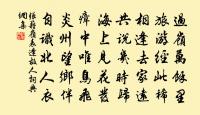 過嶺萬餘里
旅游經此稀
相逢去家遠
共説幾時歸
海上見花發
瘴中唯鳥飛
炎州望鄉伴
自識北人衣
張籍嶺表逢故人詞典
網集